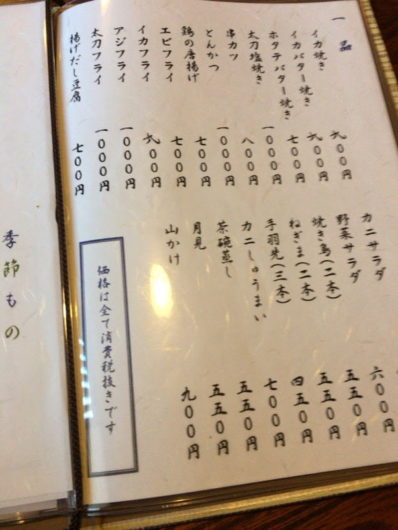 一品
イカ焼き 九〇〇円
イカバター焼き 九〇〇円
ホタテバター焼き 七〇〇円
太刀塩焼き 一〇〇〇円
串カツ 八〇〇円
とんかつ 一〇〇〇円
鶏の唐揚げ 七〇〇円
エビフライ 七〇〇円
イカフライ 九〇〇円
アジフライ 一〇〇〇円
太刀フライ 一〇〇〇円
揚げだし豆腐 七〇〇円
カニサラダ
野菜サラダ 六〇〇円
焼き鳥(二本) 五五〇円
ねぎま(二本) 五五〇円
手羽先(三本) 四五〇円
カニしゅうまい 七〇〇円
茶碗蒸し 五五〇円
月見 五五〇円
山かけ 九〇〇円
価格は全て消費税抜きです
季節もの